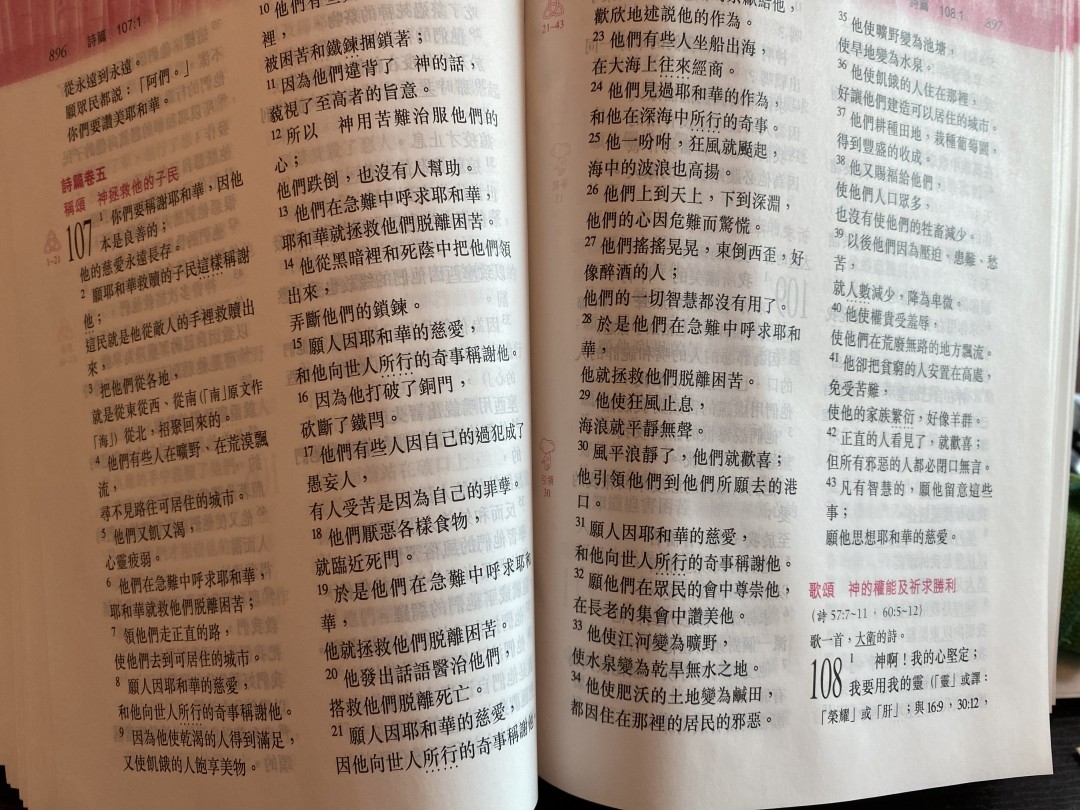 896 詩篇 107:1
從永遠到永遠。
願眾民都説：「阿們。」
你們要讚美耶和華。
詩篇卷五
稱頌　神拯救他的子民
1~21
107 1 你們要稱謝耶和華，因他
本是良善的；
他的慈愛永遠長存。
2 願耶和華救贖的子民這樣稱謝
他；
這民就是他從敵人的手裡救贖出
來，
3 把他們從各地，
就是從東從西、從南(「南」原文作
「海」) 從北，招聚回來的。
4 他們有些人在曠野、在荒漠飄
流，
尋不見路往可居住的城市。
5 他們又飢又渴，
心靈疲弱。
6 他們在急難中呼求耶和華，
耶和華就拯救他們脱離困苦；
7 領他們走正直的路，
使他們去到可居住的城市。
8 願人因耶和華的慈愛，
和他向世人所行的奇事稱謝他。
9 因為他使乾渴的人得到滿足，
又使飢餓的人飽享美物。
10 他們有些
裡，
被困苦和鐵鍊捆鎖著；
11 因為他們違背了　神的話，
藐視了至高者的旨意。
12 所以　神用苦難治服他們的
心；
他們跌倒，也沒有人幫助。
13 他們在急難中呼求耶和華，
耶和華就拯救他們脱離困苦。
14 他從黑暗裡和死蔭中把他們領
出來，
弄斷他們的鎖鍊。
15 願人因耶和華的慈愛，
和他向世人所行的奇事稱謝他。
16 因為他打破了銅門，
砍斷了鐵閂。
17 他們有些人因自己的過犯成了
愚妄人，
有人受苦是因為自己的罪孽。
18 他們厭惡各樣食物，
就臨近死門。
19 於是他們在急難中呼求耶和
華，
他就拯救他們脱離困苦。
20 他發出話語醫治他們，
搭救他們脱離死亡。
21 願人因耶和華的慈愛，
因他向世人所行的奇事稱謝他
獻給他，
歡欣地述説他的作為。
21~43
23 他們有些人坐船出海，
在大海上往來經商。
24 他們見過耶和華的作為，
和他在深海中所行的奇事。
25 他一吩咐，狂風就颳起，
海中的波浪也高揚。
26 他們上到天上，下到深淵，
他們的心因危難而驚慌。
27 他們搖搖晃晃，東倒西歪，好
像醉酒的人；
他們的一切智慧都沒有用了。
28 於是他們在急難中呼求耶和
華，
他就拯救他們脱離困苦。
29 他使狂風止息，
海浪就平靜無聲。
30 風平浪靜了，他們就歡喜；
他引領他們到他們所願去的港
口。
30
31 願人因耶和華的慈愛，
和他向世人所行的奇事稱謝他。
32 願他們在眾民的會中尊崇他，
在長老的集會中讚美他。
33 他使江河變為曠野，
使水泉變為乾旱無水之地。
34 他使肥沃的土地變為鹹田，
都因住在那裡的居民的邪惡。
詩篇 108:1 897
35 他使曠野變為池塘，
使旱地變為水泉。
36 他使飢餓的人住在那裡，
好讓他們建造可以居住的城市。
37 他們耕種田地，栽種葡萄園，
得到豐盛的收成。
38 他又賜福給他們，
使他們人口眾多，
也沒有使他們的牲畜減少。
39 以後他們因為壓迫、患難、愁
苦，
就人數減少，降為卑微。
40 他使權貴受羞辱，
使他們在荒廢無路的地方飄流。
41 他卻把貧窮的人安置在高處，
免受苦難，
使他的家族繁衍，好像羊群。
42 正直的人看見了，就歡喜；
但所有邪惡的人都必閉口無言。
43 凡有智慧的，願他留意這些
事；
願他思想耶和華的慈愛。
歌頌　神的權能及祈求勝利
(詩 57:7~11，60:5~12)
歌一首，大衛的詩。
108 1 　神啊！我的心堅定；
我要用我的靈 (「靈」或譯：
「榮耀」或「肝」；與16:9，30:12，